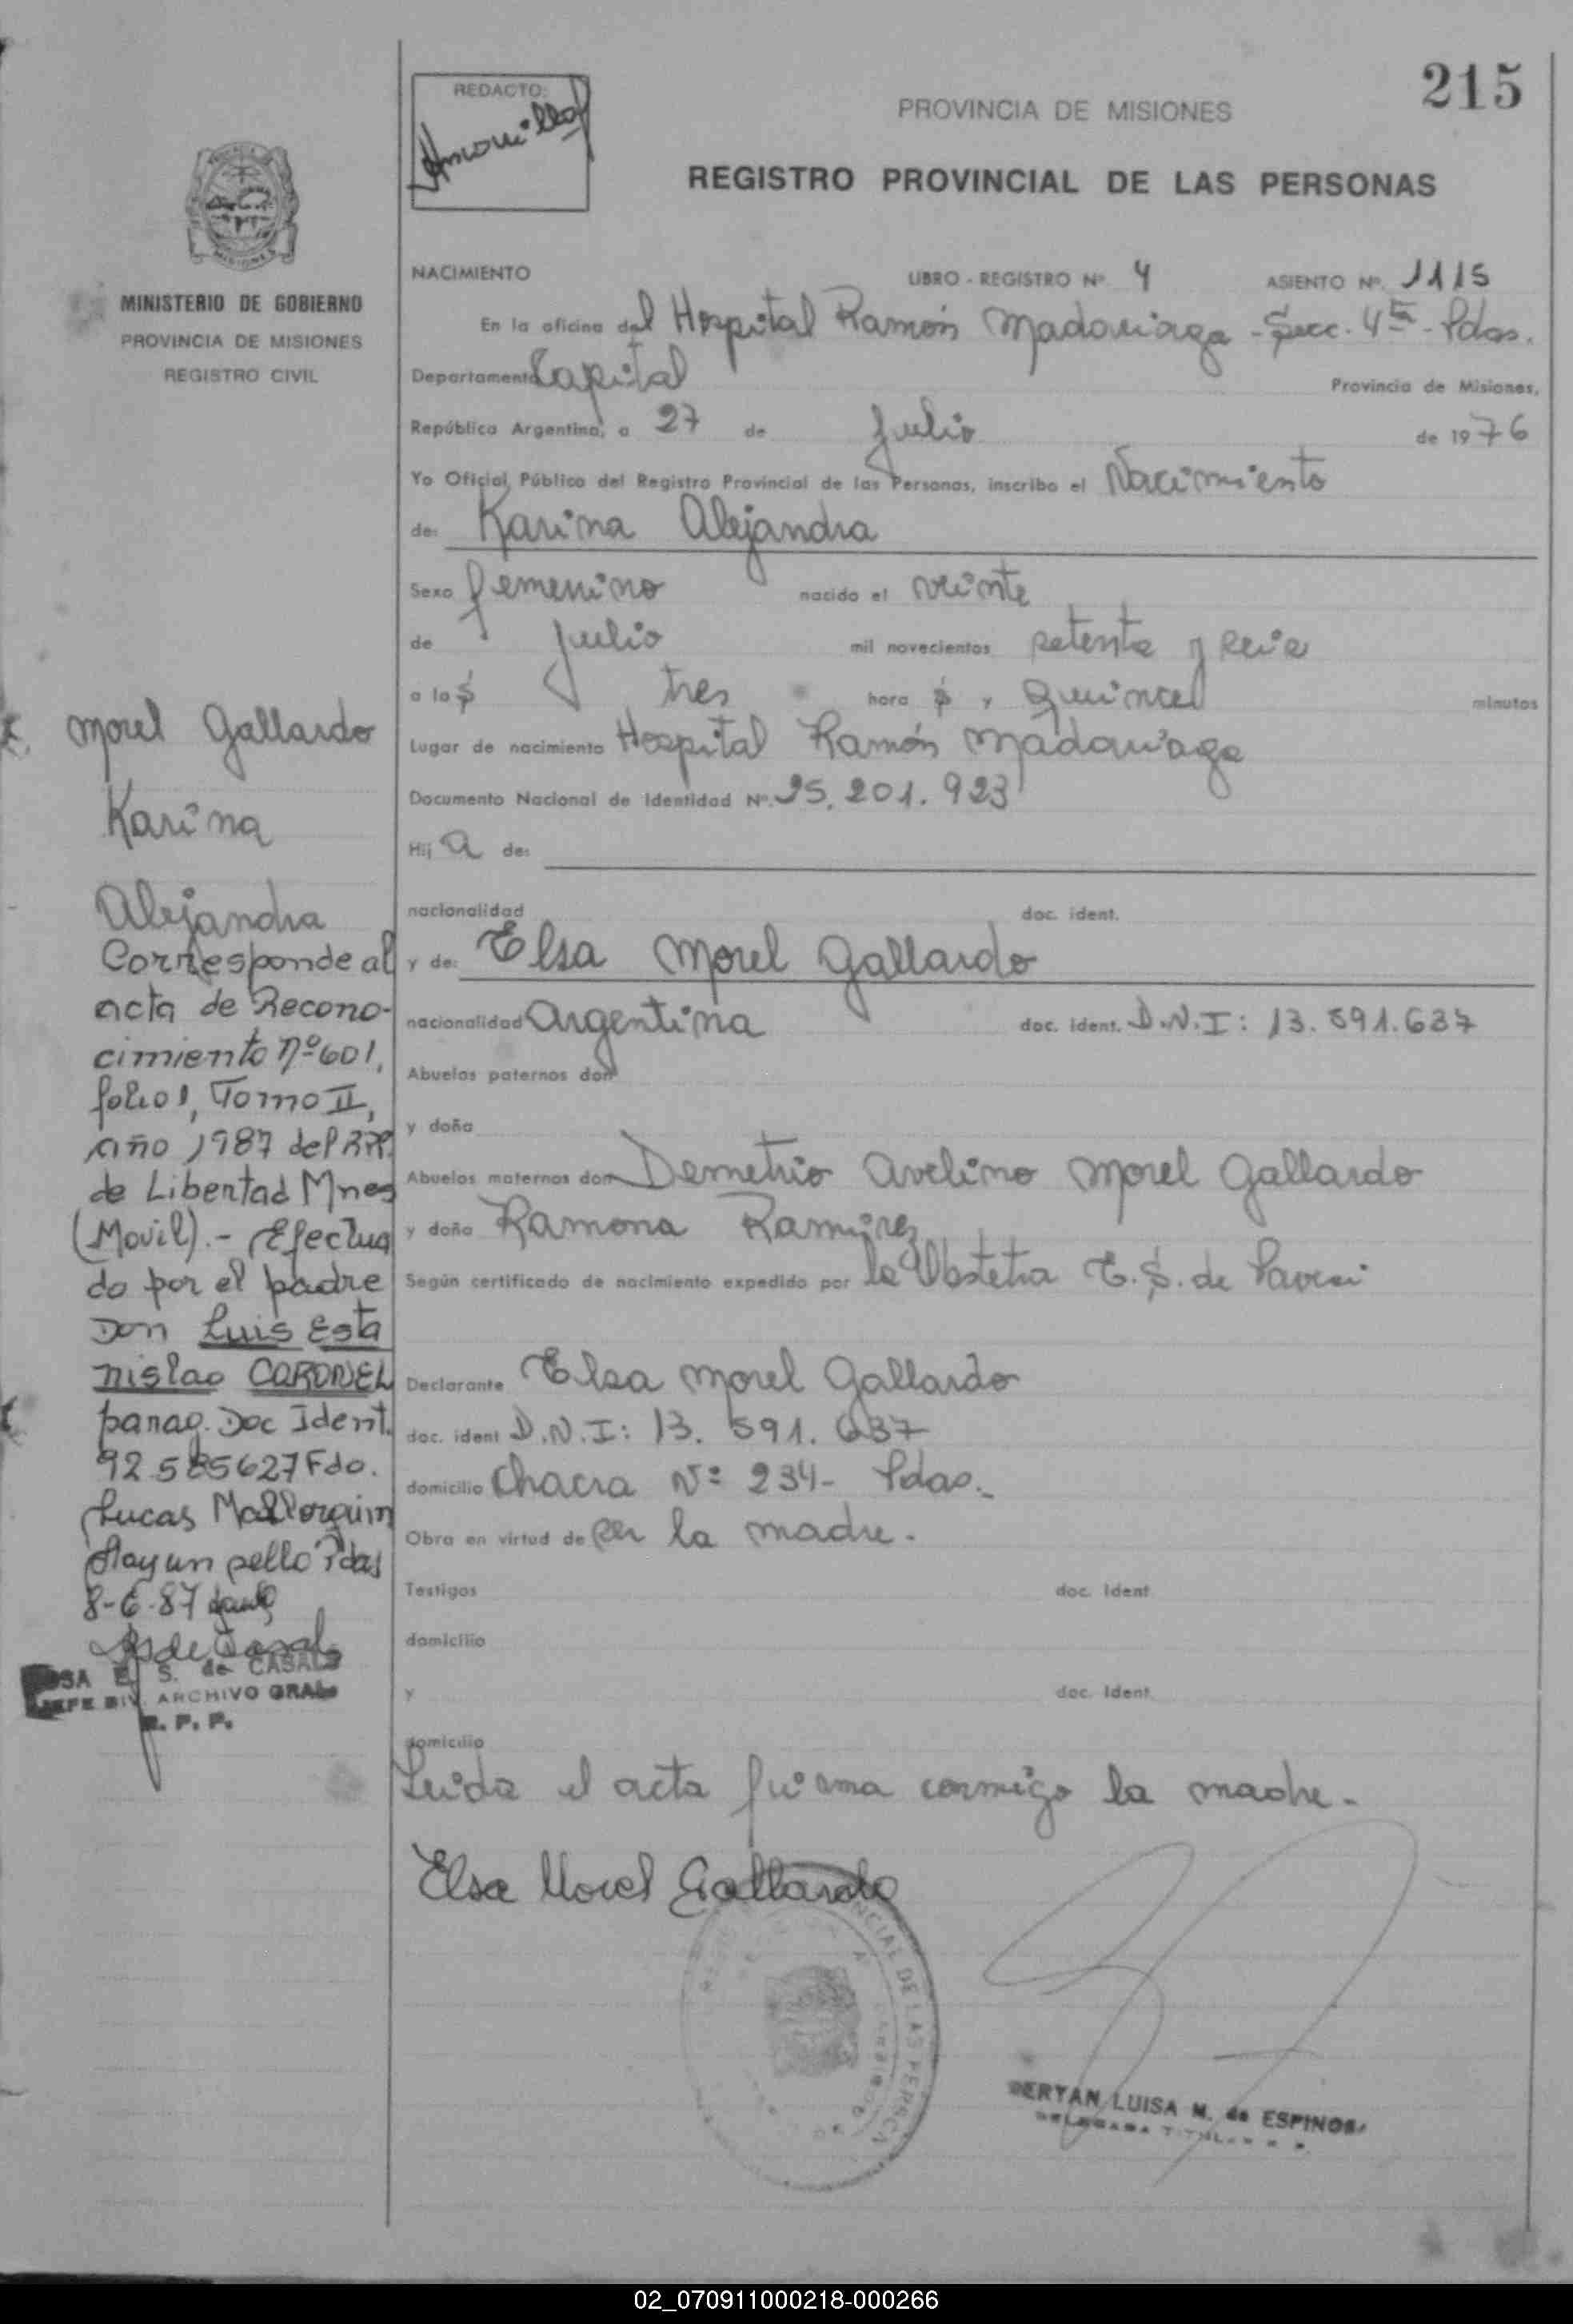 215
REDACTO:
PROVINCIA DE MISIONES
REGISTRO PROVINCIAL DE LAS PERSONAS
MINISTERIO DE GOBIERNO
PROVINCIA DE MISIONES
REGISTRO CIVIL
Morel Gallardo
Karina
Alejandra
Corresponde al
acta de Recono-
cimiento nº 601,
folio 1, Tomo II,
año 1987 del R.P.P.
de Libertad Mnes
(Movil).- Efectua
do por el padre
Don Luis Esta
nislao CORONEL
parag. Doc Ident.
92.585627 Fdo.
Lucas Mallorquin
Hay un sello Pdas
8-6-87
S. de CASALS
JEFE DIV. ARCHIVO GRAL.
R. P. P.
NACIMIENTO LIBRO - REGISTRO Nº 4 ASIENTO Nº 1115
En la oficina del Hospital Ramón Madariaga - Secc. 4ta - Pdas.
Departamento Capital Provincia de Misiones,
República Argentina, a 27 de Julio de 1976
Yo Oficial Público del Registro Provincial de las Personas, inscribo el Nacimiento
de: Karina Alejandra
Sexo femenino nacido el veinte
de Julio mil novecientos setenta y seis
a las tres hora s y quince minutos
Lugar de nacimiento Hospital Ramón Madariaga
Documento Nacional de Identidad Nº. 25.201.923
Hija de:
nacionalidad doc. ident.
y de: Elsa Morel Gallardo
nacionalidad Argentina doc. ident. D.N.I: 13.591.637
Abuelos paternos don
y doña
Abuelos maternos don Demetrio Avelino Morel Gallardo
y doña Ramona Ramirez
Según certificado de nacimiento expedido por la Obstetra E.S. de
Declarante Elsa Morel Gallardo
doc. ident D.N.I: 13.591.637
domicilio Chacra Nº 234- Pdas.-
Obra en virtud de ser la madre.
Testigos doc. Ident.
domicilio
y doc. Ident.
domicilio
Leida el acta firma conmigo la madre.-
Elsa Morel Gallardo
LUISA M. de ESPINOSA
02_070911000218-000266